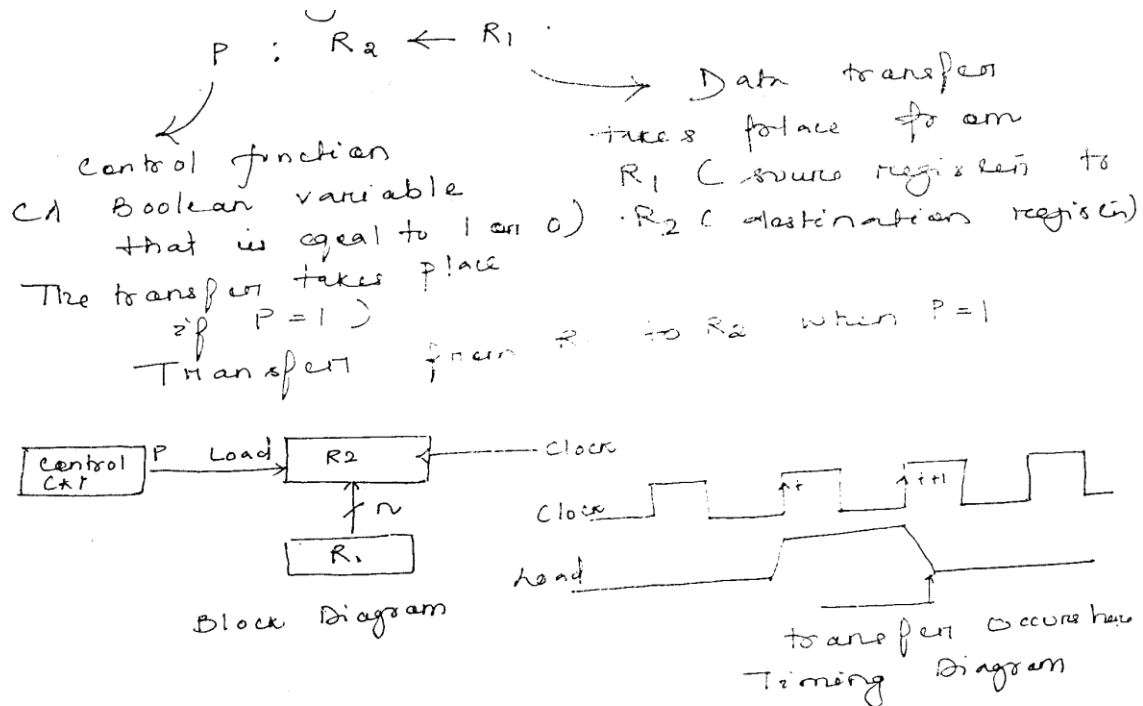 P : R2 ← R1
Data transfer
takes place from
R1 (source register to
R2 (destination register)
Control function
(A Boolean variable
that is eqeal to 1 or 0)
The transfer takes place
if P = 1)
Transfer from R to R2 when P = 1
Control
CKT
P Load
R2
Clock
n
R1
Block Diagram
Clock
t
t+1
Load
transfer occurs here
Timing Diagram